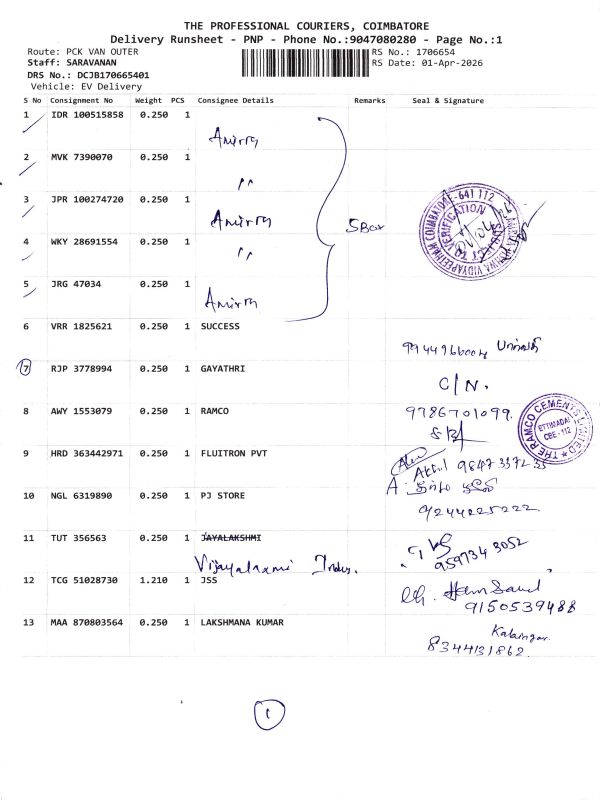 THE PROFESSIONAL COURIERS, COIMBATORE
Delivery Runsheet - PNP - Phone No.:9047080280 - Page No.:1
Route: PCK VAN OUTER
RS No.: 1706654
Staff: SARAVANAN
RS Date: 01-Apr-2026
DRS No.: DCJB170665401
Vehicle: EV Delivery
S No Consignment No Weight PCS Consignee Details Remarks Seal & Signature
1 IDR 100515858 0.250 1
2 MVK 7390070 0.250 1
"
3 JPR 100274720 0.250 1
5 Box
4 WKY 28691554 0.250 1
"
5 JRG 47034 0.250 1
6 VRR 1825621 0.250 1 SUCCESS
7 RJP 3778994 0.250 1 GAYATHRI
C/N.
8 AWY 1553079 0.250 1 RAMCO
9786701099
THE RAMCO CEMENTS LIMITED
ETTIMADAI
CBE - 112
9 HRD 363442971 0.250 1 FLUITRON PVT
10 NGL 6319890 0.250 1 PJ STORE
9244225222
11 TUT 356563 0.250 1 JAYALAKSHMI
Vijayalaxmi Indus.
959734 3052
12 TCG 51028730 1.210 1 JSS
9150539488
13 MAA 870803564 0.250 1 LAKSHMANA KUMAR
8344131862
1